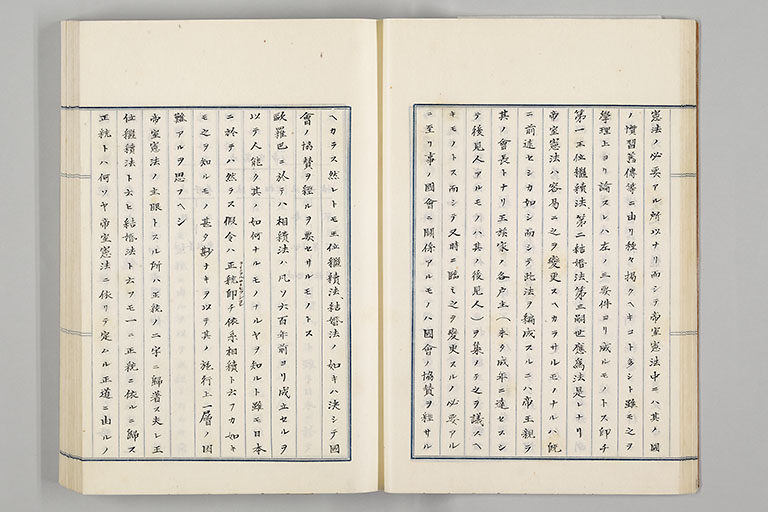 憲法ノ必要アル所以ナリ而シテ帝室憲法中ニハ其ノ國
ノ慣習舊傳等ニ由リ種々揭クヘキコト多シト雖モ之ヲ
學理上ヨリ論スレハ左ノ三要件ヨリ成ルモノトス即チ
第一王位繼續法、第二結婚法、第三嗣世應為法是レナリ
帝室憲法ハ容易ニ之ヲ變更スヘカラサルモノナルハ既
ニ前述セシカ如シ而シテ此法ヲ編成スルニハ帝王親ラ
其ノ會長トナリ王族家ノ各戸主(未タ成年ニ達セスシ
テ後見人アルモノハ其ノ後見人)ヲ集メテ之ヲ議スヘ
キモノトス而シテ又時ニ臨ミ之ヲ變更スルノ必要アル
ニ至リ事ノ國會ニ關係アルモノハ國會ノ協賛ヲ經サル
ヘカラス然レトモ王位繼續法、結婚法ノ如キハ決シテ國
會ノ協賛ヲ經ルヲ要セサルモノトス
歐羅巴ニ於テハ相續法ハ凡ソ六百年前ヨリ成立セルヲ
以テ人能ク其ノ如何ナルモノナルヤヲ知ルト雖モ日本
ニ於テハ然ラス假令ハ正統即チ依系相續ト云フカ如キ
モ之ヲ知ルモノ甚タ尠ナキヲ以テ其ノ施行上一層ノ困
難アルヲ思フヘシ
帝室憲法ノ主眼トスル所ハ正統ノ二字ニ歸著ス夫レ王
位繼續法ト云ヒ結婚法ト云フモ一ニ正統ニ依ルニ歸ス
正統トハ何ソヤ帝室憲法ニ依リテ定ムル正道ニ由ルノ